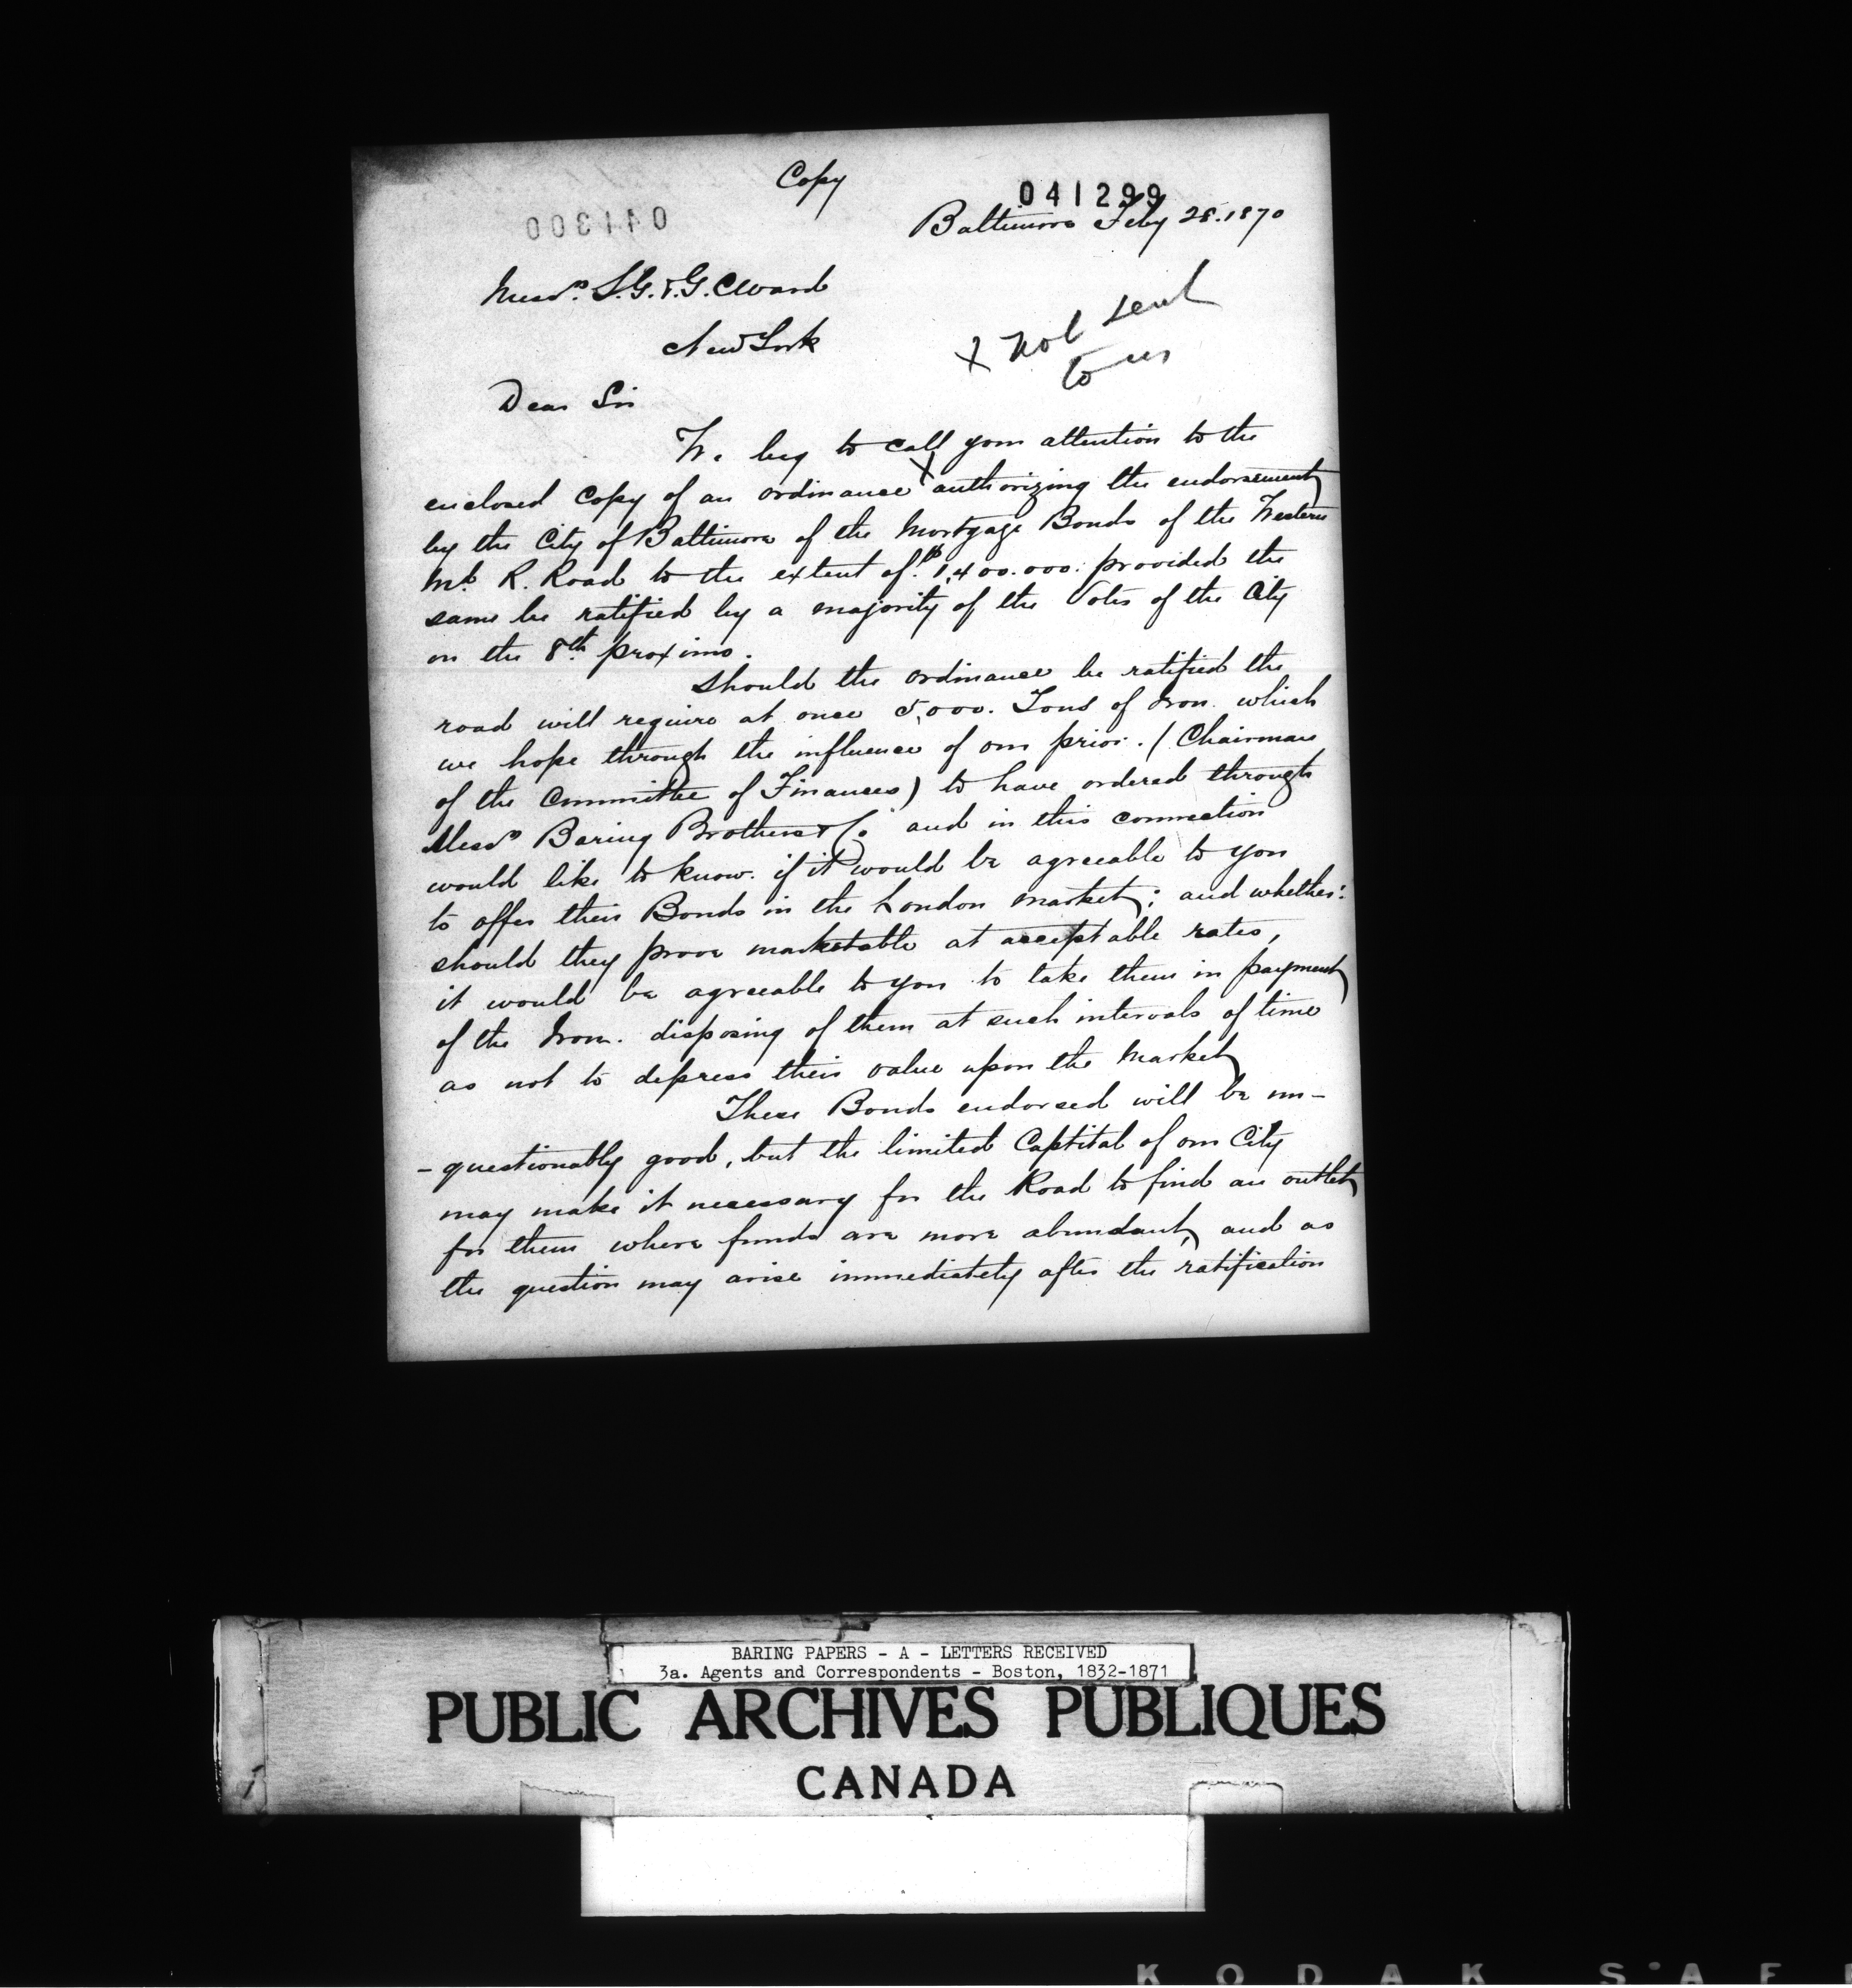 Copy
041299
Baltimore Feby 28. 1870
041300
Messrs. S.G. & G.C. Ward
New York
X Not sent
to us
Dear Sir
We beg to call your attention to the
enclosed Copy of an ordinance X authorizing the endorsement
by the City of Baltimore of the Mortgage Bonds of the Western
Md. R. Road to the extent of $1,400.000. provided the
same be ratified by a majority of the Votes of the City
on the 8th. proximo.
Should the ordinance be ratified the
road will require at once 5,000. Tons of Iron. which
we hope through the influence of our prior. (Chairman
of the Committee of Finances) to have ordered through
Messrs Baring Brothers & Co. and in this connection
would like to know. if it would be agreeable to you
to offer their Bonds in the London market; and whether:
should they prove marketable at acceptable rates,
it would be agreeable to you to take them in payment
of the Iron. disposing of them at such intervals of time
as not to depress their value upon the Market
These Bonds endorsed will be un-
-questionably good, but the limited Captital of our City
may make it necessary for the Road to find an outlet
for them where funds are more abundant, and as
the question may arise immediately after the ratification
BARING PAPERS - A - LETTERS RECEIVED
3a. Agents and Correspondents - Boston, 1832-1871
PUBLIC ARCHIVES PUBLIQUES
CANADA
KODAK SAF